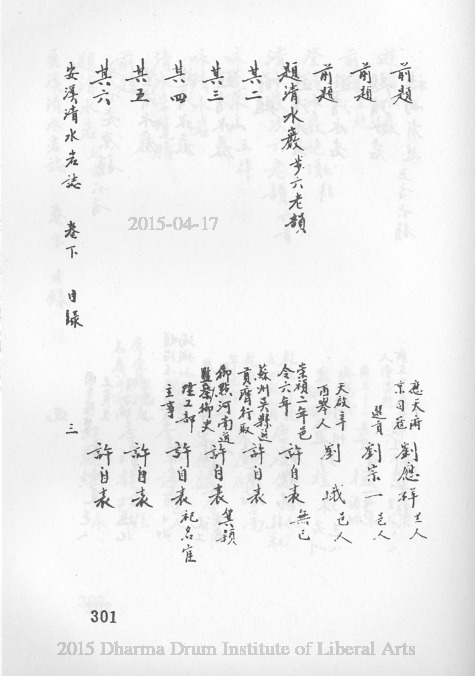 前題 應天府京司在劉應梓士人
前題 選貢劉宗一邑人
前題 天啟辛酉舉人劉 峨邑人
題清水巖步六老韻 崇禎二年邑令六年許自表無已
其二 蘇州吳縣選貢 行取許自表
其三 御 河南道監察御史許自表
其四 陞工部主事許自表
其五 許自表
其六 許自表
安溪清水岩誌 卷下 目錄 三
2015-04-17
301
2015 Dharma Drum Institute of Liberal Arts